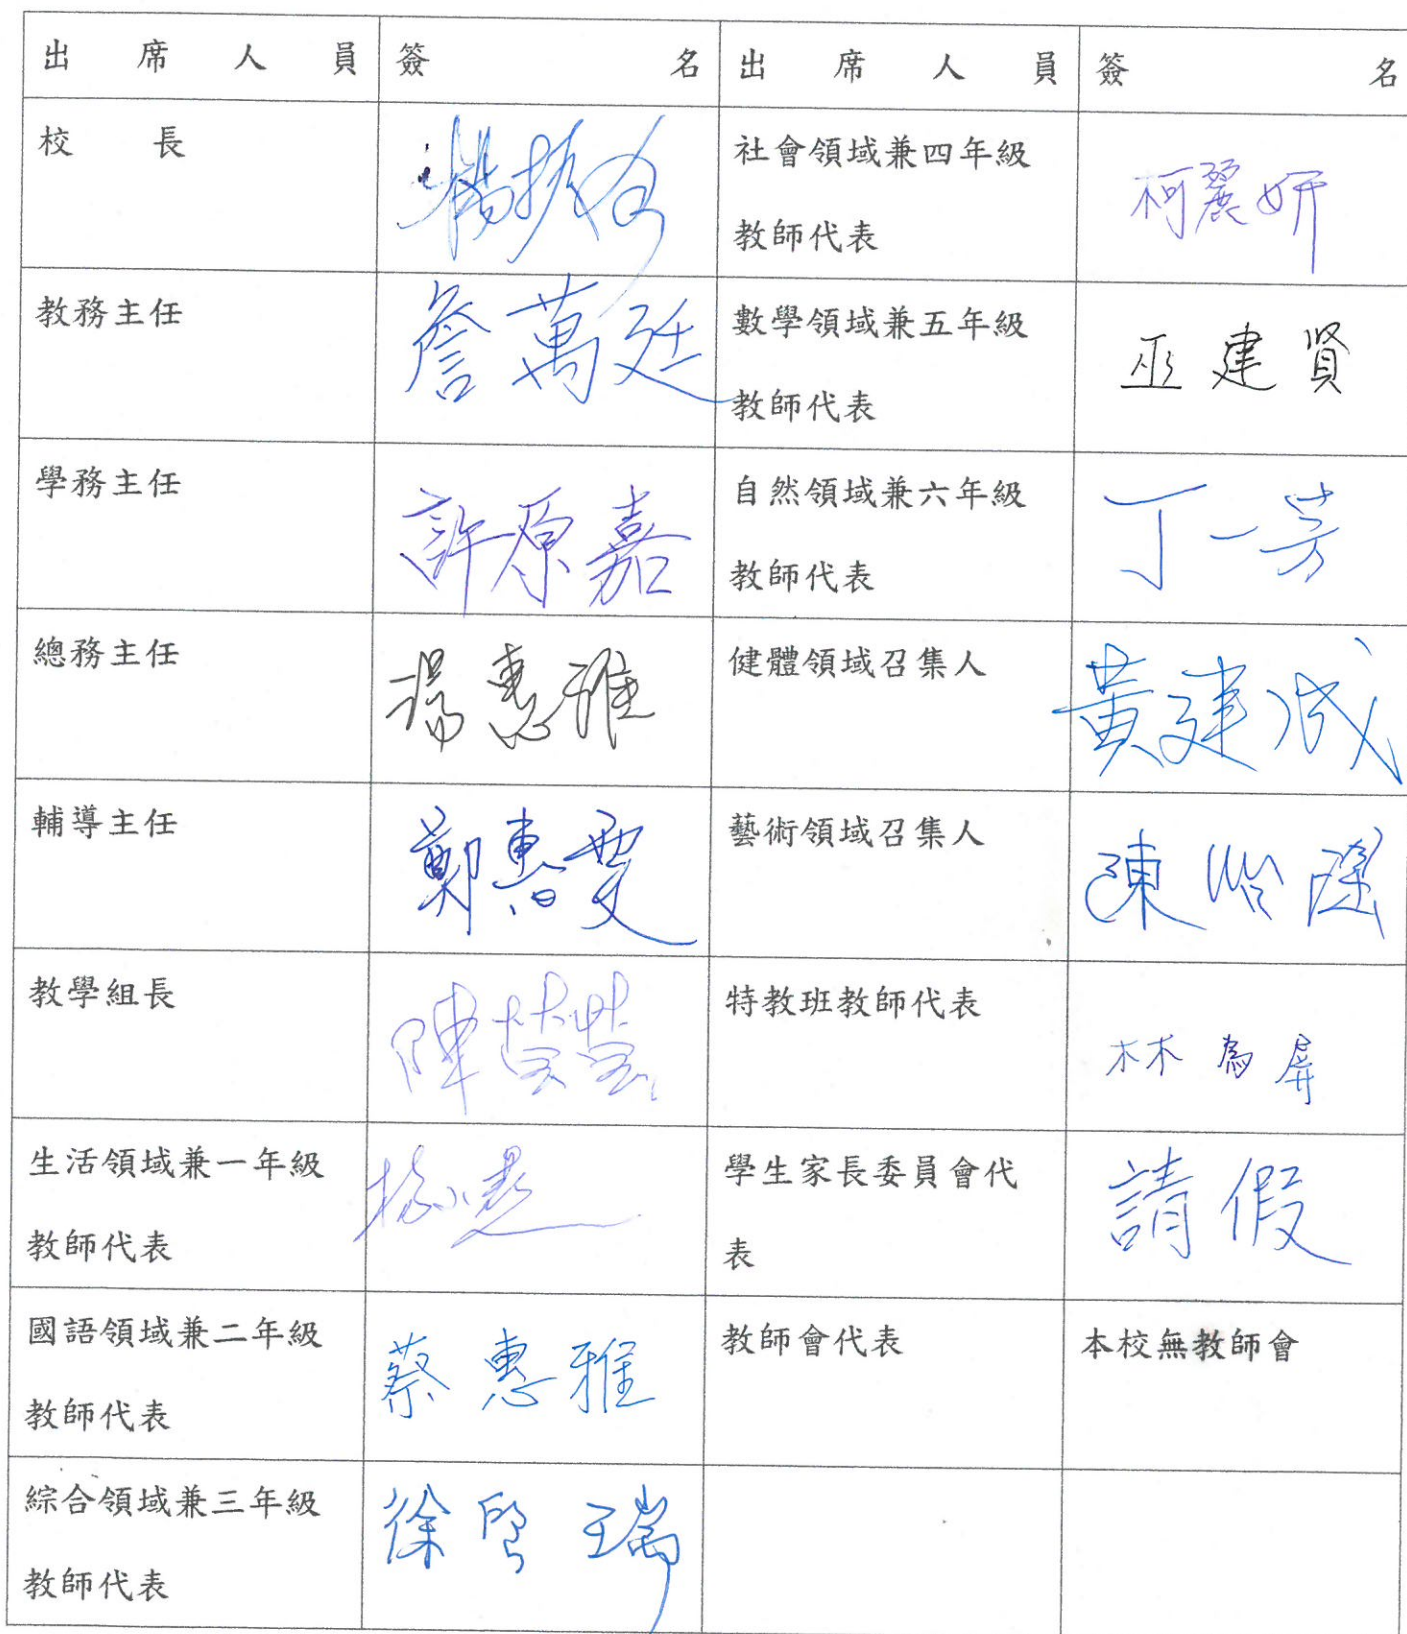 出席人員 簽名 出席人員 簽名
校長 社會領域兼四年級
教師代表 柯麗妍
教務主任 詹萬廷 數學領域兼五年級
教師代表 巫建賢
學務主任 許原嘉 自然領域兼六年級
教師代表 丁一芳
總務主任 楊惠雅 健體領域召集人 黃建成
輔導主任 鄭惠雯 藝術領域召集人 陳
教學組長 陳 特教班教師代表 林為屏
生活領域兼一年級
教師代表 學生家長委員會代
表 請假
國語領域兼二年級
教師代表 蔡惠雅 教師會代表 本校無教師會
綜合領域兼三年級
教師代表 徐 瑞